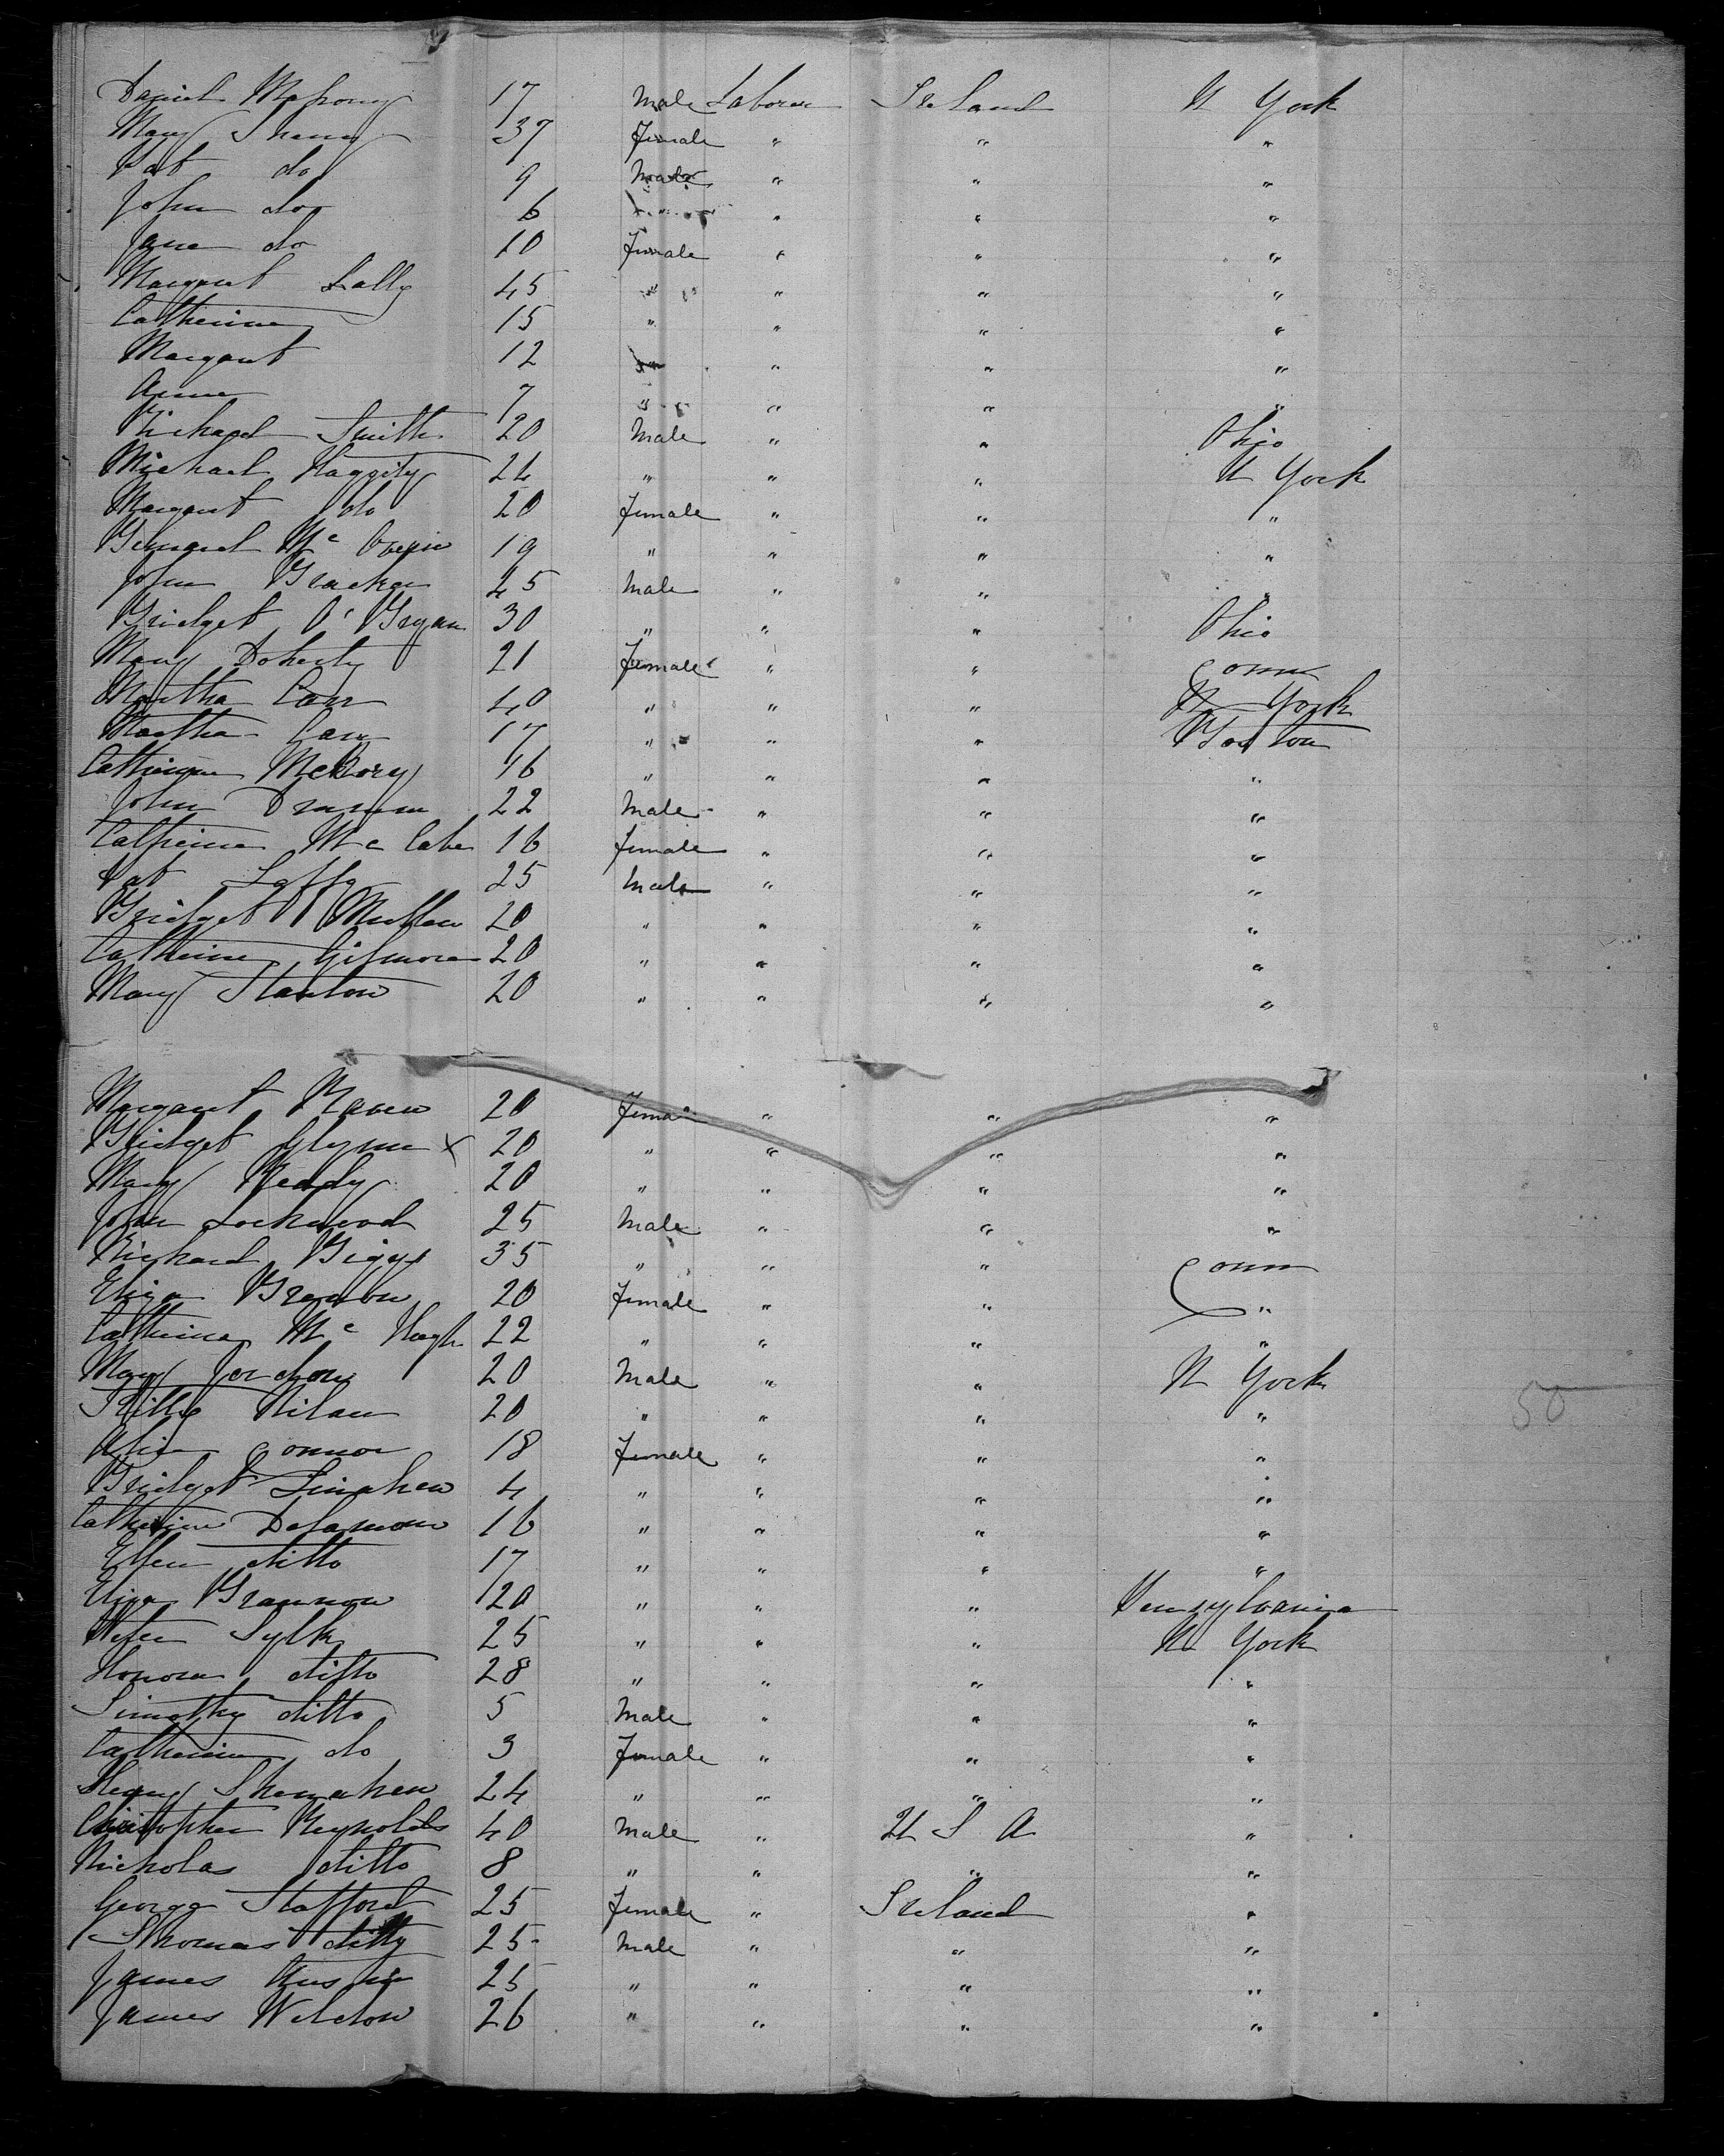 Daniel Mahony 17 Male Laborer Ireland N York
Mary 37 Female " " "
Pat do 9 Male " " "
John do 6 " " " "
Jane do 10 Female " " "
Margaret Lally 45 " " " "
Catherine 15 " " " "
Margaret 12 " " " "
Anne 7 " " " "
Richard Smith 20 Male " " Ohio
Michael Haggity 24 " " " N York
Margaret do 20 Female " " "
Mc 19 " " " "
John Bracken 25 Male " " "
Bridget O'Bryan 30 " " " Ohio
Mary Doherty 21 Female " " Conn
Martha Carr 40 " " " N York
Martha Carr 17 " " " Boston
Catherine McRory 16 " " " "
John 22 Male " " "
Catherine Mc Cabe 16 Female " " "
Pat 25 Male " " "
Bridget Mullen 20 " " " "
Catherine Gilmore 20 " " " "
Mary Stanton 20 " " " "
Margaret 20 Fema " " "
Bridget Glynn x 20 " " " "
Mary Ready 20 " " " "
John Lockwood 25 Male " " "
Richard Biggs 35 " " " Conn
Eliza 20 Female " " "
Catherine Mc Hugh 22 " " " "
Mary Jordon 20 Male " " N York
Nilan 20 " " " "
Alice Connor 18 Female " " "
Bridget Linahen 4 " " " "
Catherine Delamore 16 " " " "
Ellen ditto 17 " " " "
Eliza Brannon 20 " " " Pennsylvania
Sylk 25 " " " N York
Honora ditto 28 " " " "
Timothy ditto 5 Male " " "
Catherine do 3 Female " " "
24 " " " "
Christopher Reynolds 40 Male " U S A "
Nicholas ditto 8 " " " "
George Stafford 25 Female " Ireland "
Thomas ditto 25 Male " " "
James 25 " " " "
James Weldon 26 " " " "
50